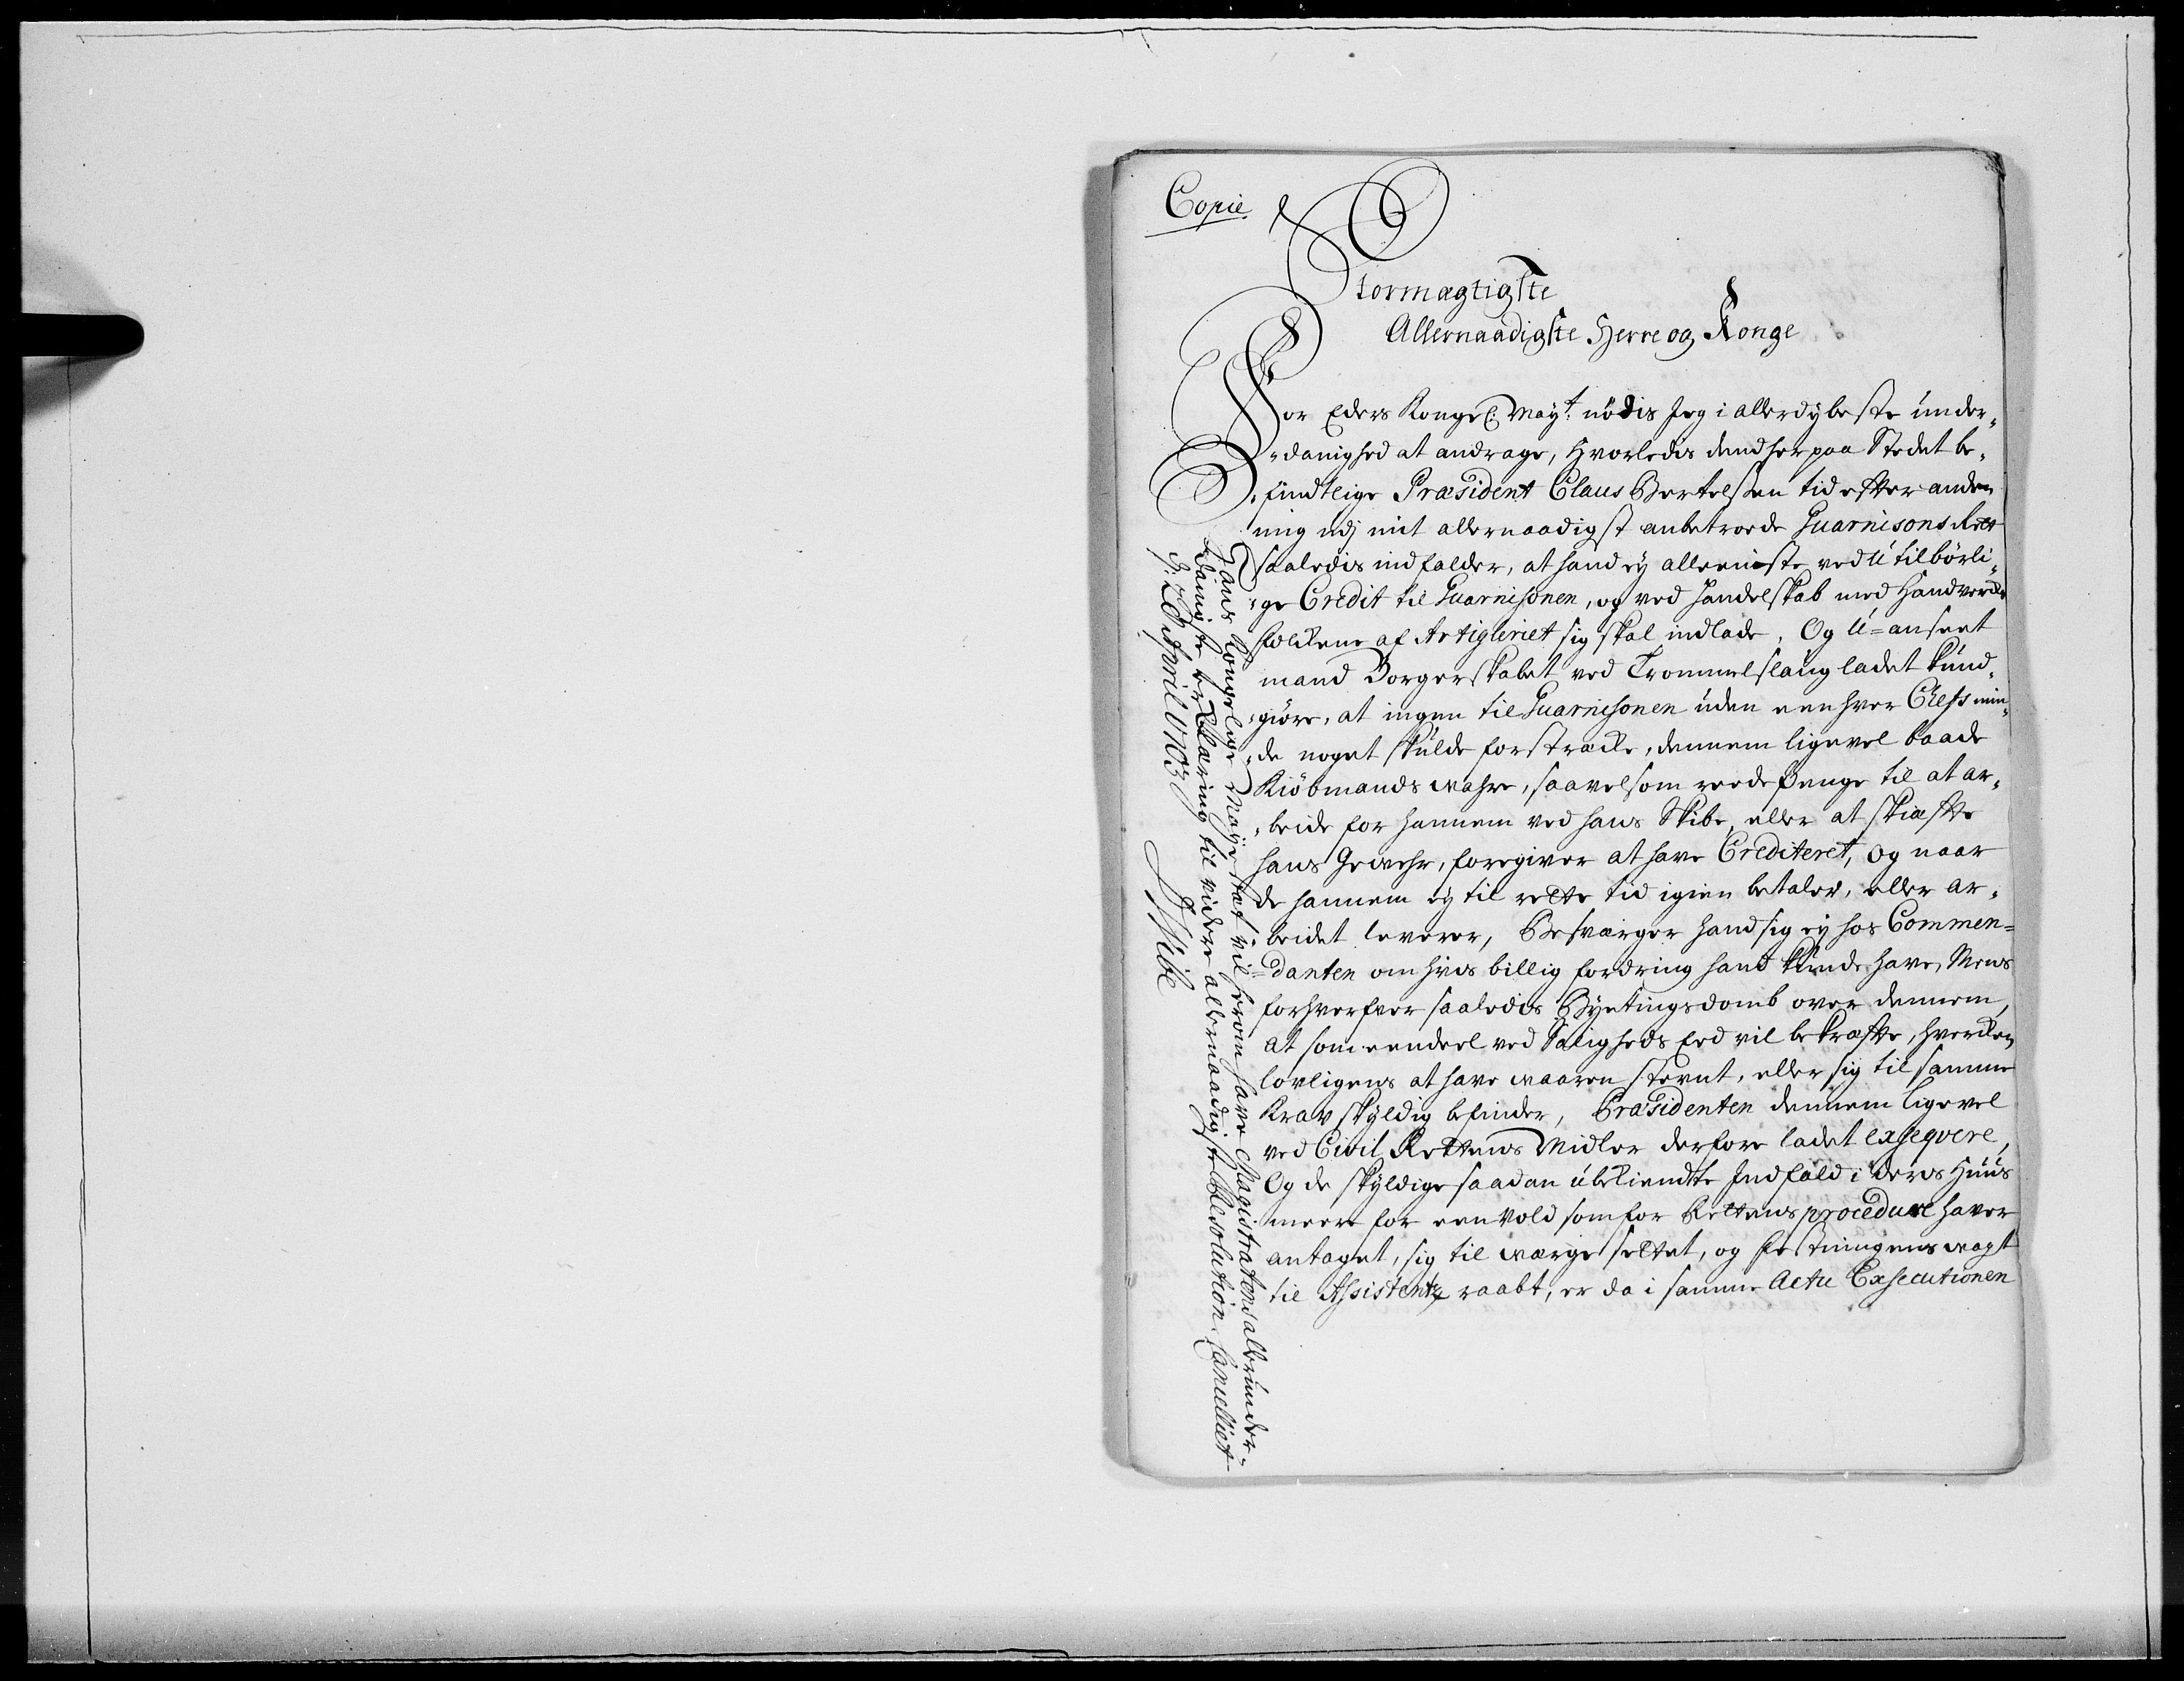 Copie
Stormægtigste
Allernaadigste Herre og Konge
For Eders Kongel: May:t nödis Jeg i allerdybeste under¬
danighed at andrage, Hvorledis dend her paa Stedet be¬
findtlige Præsident Claus Bertelsen tid efter anden
mig udj mit allernaadigst anbetroede Guarnisons Rett
saaledis indfalder, at hand ej alleeniste ved utilbörli¬
ge Credit til Guarnisonen, og ved handelskab med Handverks
folkene af Artigleriet sig skal indlade. Og U=anseet
mand Borgerskabet ved Trommelslaug ladet kund¬
giöre, at ingen til Guarnisonen uden een hver Chefs min¬
de noget skulde forstræcke, dennem ligevel baade
Kiöbmands wahre, saavelsom reede Penge til at ar¬
beide for hannem ved hans Skibe, eller at skiæfte
hans Gewehr, foregiver at have Crediteret, og naar
de hannem ej til rette tid igien betaler, eller ar¬
beidet leverer, Besværger hand sig ej hos Commen=
=danten om hvis billig fordring hand kunde have, Mens
forhverfver saaledis Byetingsdomb over dennem,
at som eendeel ved Saligheds Eed vil bekræfte, hverken
lovligens at have waaren stevnt, eller sig til samme
Krav skyldig befinder, Præsidenten dennem ligevel
ved Civil Rettens Midler derfore ladet exseqvere,
Og de skyldige saadan ubekiendte Indfald i deris Huus
meere for een Vold som for Rettens procedure haver
antaget, sig til wærge settet, og Festningens wagt
til Assistentz raabt, er da i samme Actu Exsecutionen
Hans Kongelige Mayestæt vil herom have Magistratens allerunder¬
danigste erklæring til videre allernaadigste Resolution. Cancelliet
d: 28 April 1703
J Wibe